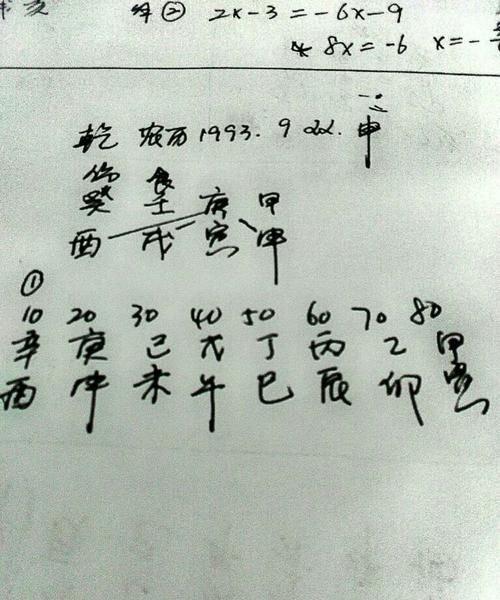 ② 2x-3=-6x-9
8x=-6 x=-
乾 农历1993.9.22.申
伤 食
癸 壬 庚 甲
酉 戌 寅 申
①
10 20 30 40 50 60 70 80
辛 庚 己 戊 丁 丙 乙 甲
酉 申 未 午 巳 辰 卯 寅